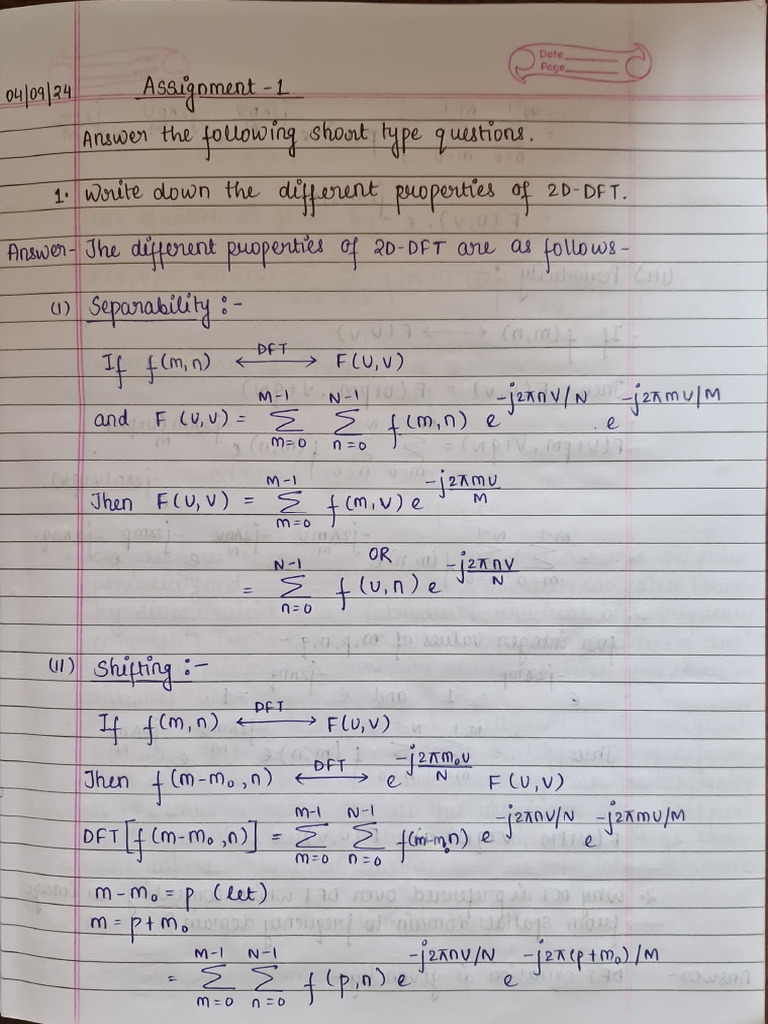 Date
Page
04/09/24 Assignment - 1
Answer the following short type questions.
1. Write down the different properties of 2D-DFT.
Answer- The different properties of 2D-DFT are as follows-
(I) Separability :-
If f(m,n) <--DFT--> F(U,V)
and F(U,V) = Σ_{m=0}^{M-1} Σ_{n=0}^{N-1} f(m,n) e^{-j2πnV/N} . e^{-j2πmU/M}
Then F(U,V) = Σ_{m=0}^{M-1} f(m,V) e^{-j2πmU/M}
OR
= Σ_{n=0}^{N-1} f(U,n) e^{-j2πnV/N}
(II) Shifting :-
If f(m,n) <--DFT--> F(U,V)
Then f(m-m₀,n) <--DFT--> e^{-j2πm₀U/N} F(U,V)
DFT[f(m-m₀,n)] = Σ_{m=0}^{M-1} Σ_{n=0}^{N-1} f(m-m₀,n) e^{-j2πnV/N} e^{-j2πmU/M}
m-m₀ = p (let)
m = p+m₀
= Σ_{m=0}^{M-1} Σ_{n=0}^{N-1} f(p,n) e^{-j2πnV/N} e^{-j2π(p+m₀)/M}